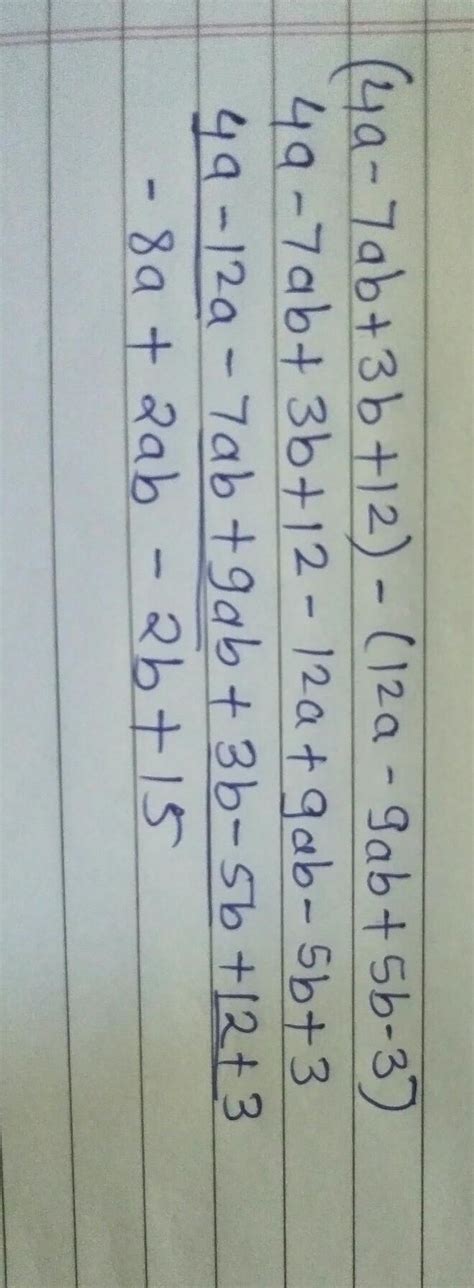 (4a - 7ab + 3b + 12) - (12a - 9ab + 5b - 3)
4a - 7ab + 3b + 12 - 12a + 9ab - 5b + 3
4a - 12a - 7ab + 9ab + 3b - 5b + 12 + 3
- 8a + 2ab - 2b + 15